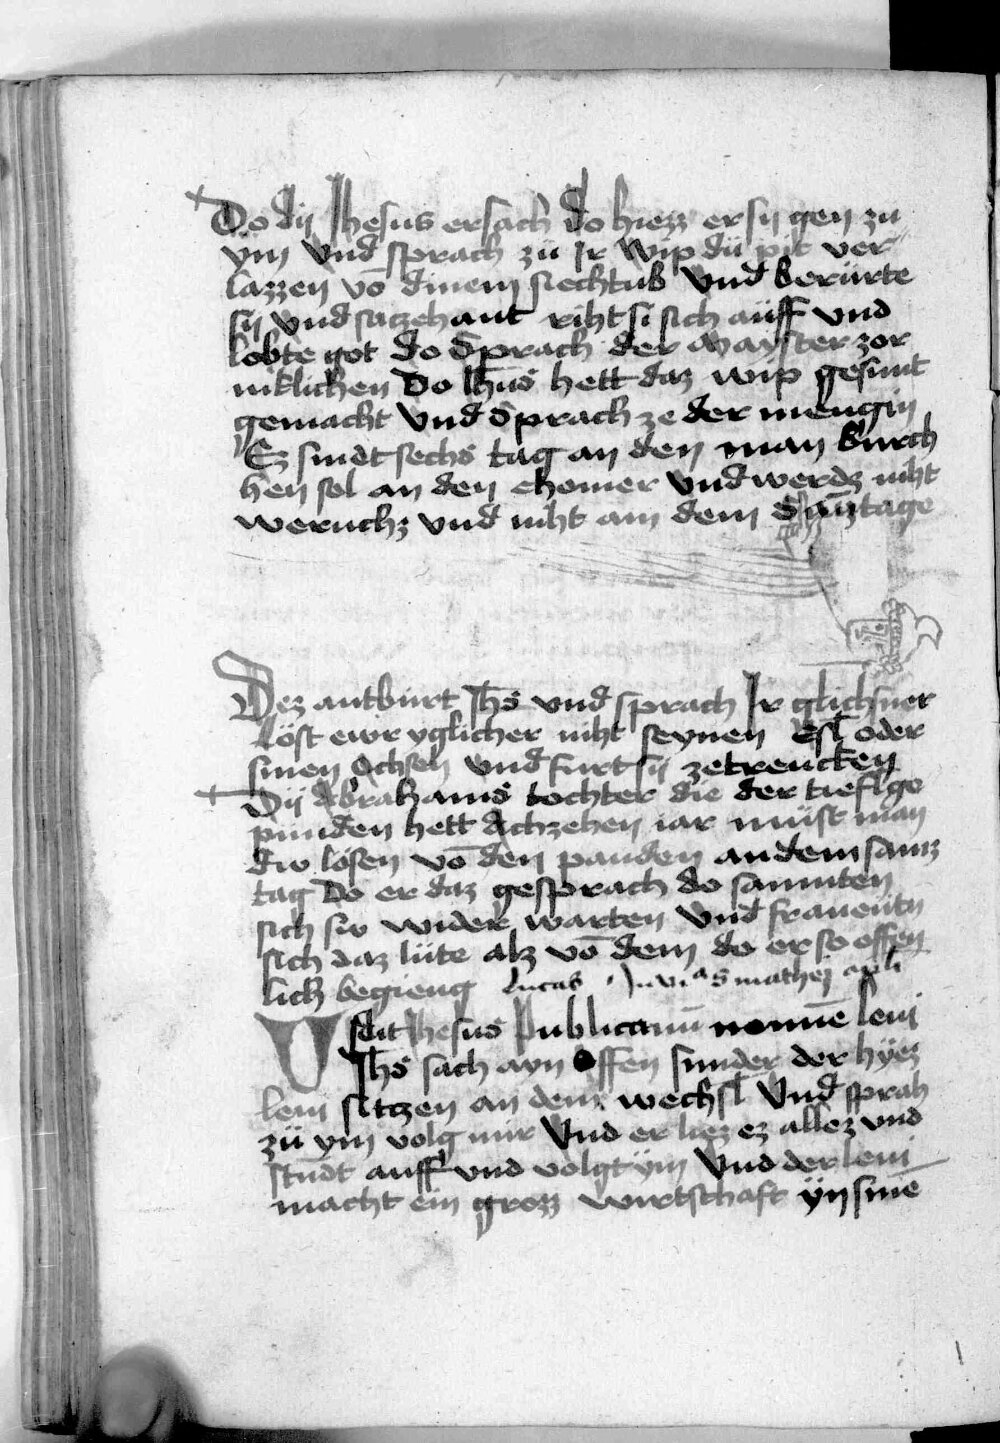 Do dÿ Jhesus ersach do hiezz er sy gen zu
ym Vnd sprach zü Jr Wip dü pit ver
lazzen vō dinem siechtub Vnd berürte
sy Vnd satzehant riht si sich aüff vnd
lobte got do Sprach der Mayster zor
niklichen Do Jhūs hett daz wip gesunt
gemacht Vnd Sprach ze der mengin
Ez sindt sechs tag an den man bürch
hen sol an den chomer Vnd werdz niht
weruchz vnd niht am dem Samztage
Dez antbürt Jhs̄ vnd sprach Jr glichsner
löst ewr yglicher niht seynen Esl oder
sinen Ochsen Vnd furt sy zetrencken
Dÿ Abrahams tochter die der tiefl ge
punden hett Achzehen iar müst man
diw lösen vō den panden an dem samz
tag Do er daz gesprach do samnten
sich siv wider warten Vnd fraueütn
sich daz lüte alz vō dem do er so offen
lich begieng Lucas mathej apli
Vidit Jhesus Publicanū nomine leui
Jhs̄ sach ayn Offen sunder der hÿez
leui sitzen an dem wechsl Vnd sprah
zü ym volg mir Vnd er liez ez allez vnd
stündt auff vnd volgt ÿm Vnd der leui
macht ein grozz wirtschaft ÿn sinē